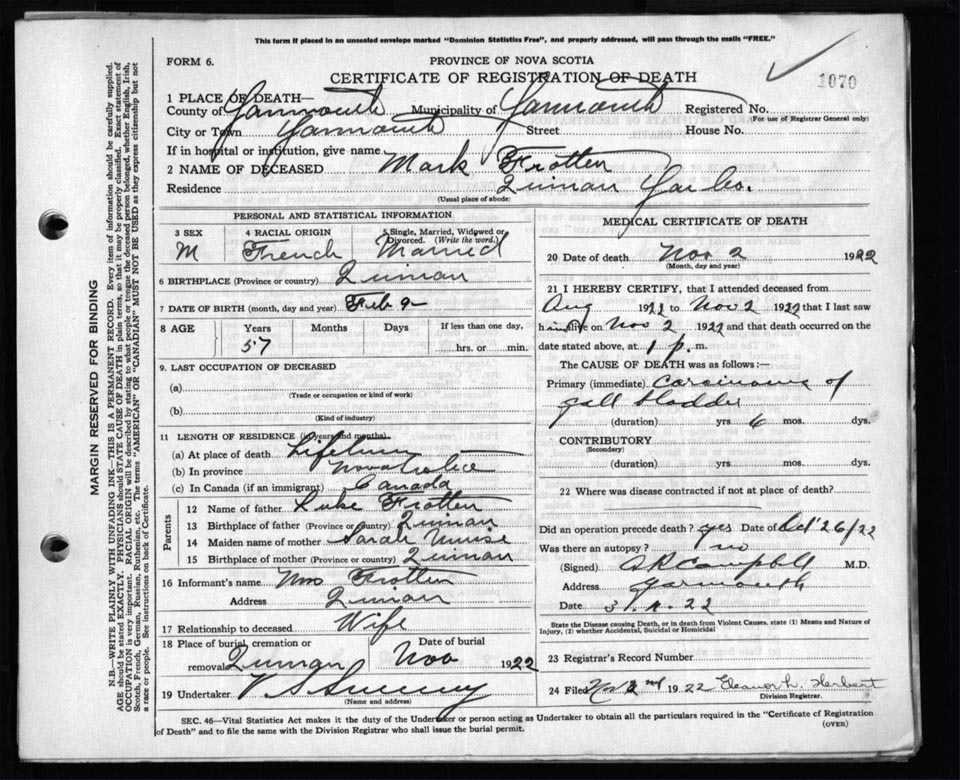 This form if placed in an unsealed envelope marked "Dominion Statistics Free", and properly addressed, will pass through the mails "FREE."
FORM 6.
PROVINCE OF NOVA SCOTIA
CERTIFICATE OF REGISTRATION OF DEATH
1070
1 PLACE OF DEATH—
County of Yarmouth Municipality of Yarmouth Registered No.
(For use of Registrar General only)
City or Town Yarmouth Street House No.
If in hospital or institution, give name
2 NAME OF DECEASED Mark Frotten
Residence Quinan Yar Co.
(Usual place of abode)
PERSONAL AND STATISTICAL INFORMATION
3 SEX 4 RACIAL ORIGIN 5 Single, Married, Widowed or Divorced. (Write the word.)
M French Married
6 BIRTHPLACE (Province or country) Quinan
7 DATE OF BIRTH (month, day and year) Feb 9
8 AGE Years Months Days If less than one day,
57 hrs. or min.
9. LAST OCCUPATION OF DECEASED
(a)
(Trade or occupation or kind of work)
(b)
(Kind of industry)
11 LENGTH OF RESIDENCE (in years and months)
(a) At place of death Lifetime
(b) In province Nova Scotia
(c) In Canada (if an immigrant) Canada
Parents
12 Name of father Luke Frotten
13 Birthplace of father (Province or country) Quinan
14 Maiden name of mother Sarah Muise
15 Birthplace of mother (Province or country) Quinan
16 Informant's name Mrs Frotten
Address Quinan
17 Relationship to deceased Wife
18 Place of burial, cremation or removal Quinan Date of burial Nov 1922
19 Undertaker V S Sweeny
(Name and address)
MEDICAL CERTIFICATE OF DEATH
20 Date of death Nov 2 1922
(Month, day and year)
21 I HEREBY CERTIFY, that I attended deceased from
Aug 1922 to Nov 2 1922 that I last saw
him alive on Nov 2 1922 and that death occurred on the
date stated above, at 1 p. m.
The CAUSE OF DEATH was as follows:—
Primary (immediate) Carcinoma of
gall bladder
(duration) yrs 6 mos. dys.
CONTRIBUTORY
(Secondary)
(duration) yrs. mos. dys.
22 Where was disease contracted if not at place of death?
Did an operation precede death? yes Date of Oct 26/22
Was there an autopsy? no
(Signed) A R Campbell M.D.
Address Yarmouth
Date 22
State the Disease causing Death, or in death from Violent Causes, state (1) Means and Nature of
Injury, (2) whether Accidental, Suicidal or Homicidal
23 Registrar's Record Number
24 Filed Nov 2nd 1922 Eleanor L. Herbert
Division Registrar.
SEC. 46—Vital Statistics Act makes it the duty of the Undertaker or person acting as Undertaker to obtain all the particulars required in the "Certificate of Registration
of Death" and to file the same with the Division Registrar who shall issue the burial permit.
(OVER)
MARGIN RESERVED FOR BINDING
N.B.—WRITE PLAINLY WITH UNFADING INK—THIS IS A PERMANENT RECORD. Every item of information should be carefully supplied.
AGE should be stated EXACTLY. PHYSICIANS should STATE CAUSE OF DEATH in plain terms, so that it may be properly classified. Exact statement of
OCCUPATION is very important. RACIAL ORIGIN will be described by stating to what people or tongue the deceased person belonged, whether English, Irish,
Scotch, French, German, Russian, Ruthenian, etc. The terms "AMERICAN" OR "CANADIAN" MUST NOT BE USED as they express citizenship but not
a race or people. See instructions on back of Certificate.